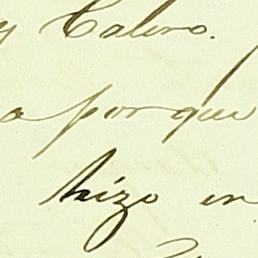 y Calero.
a porque
hizo en